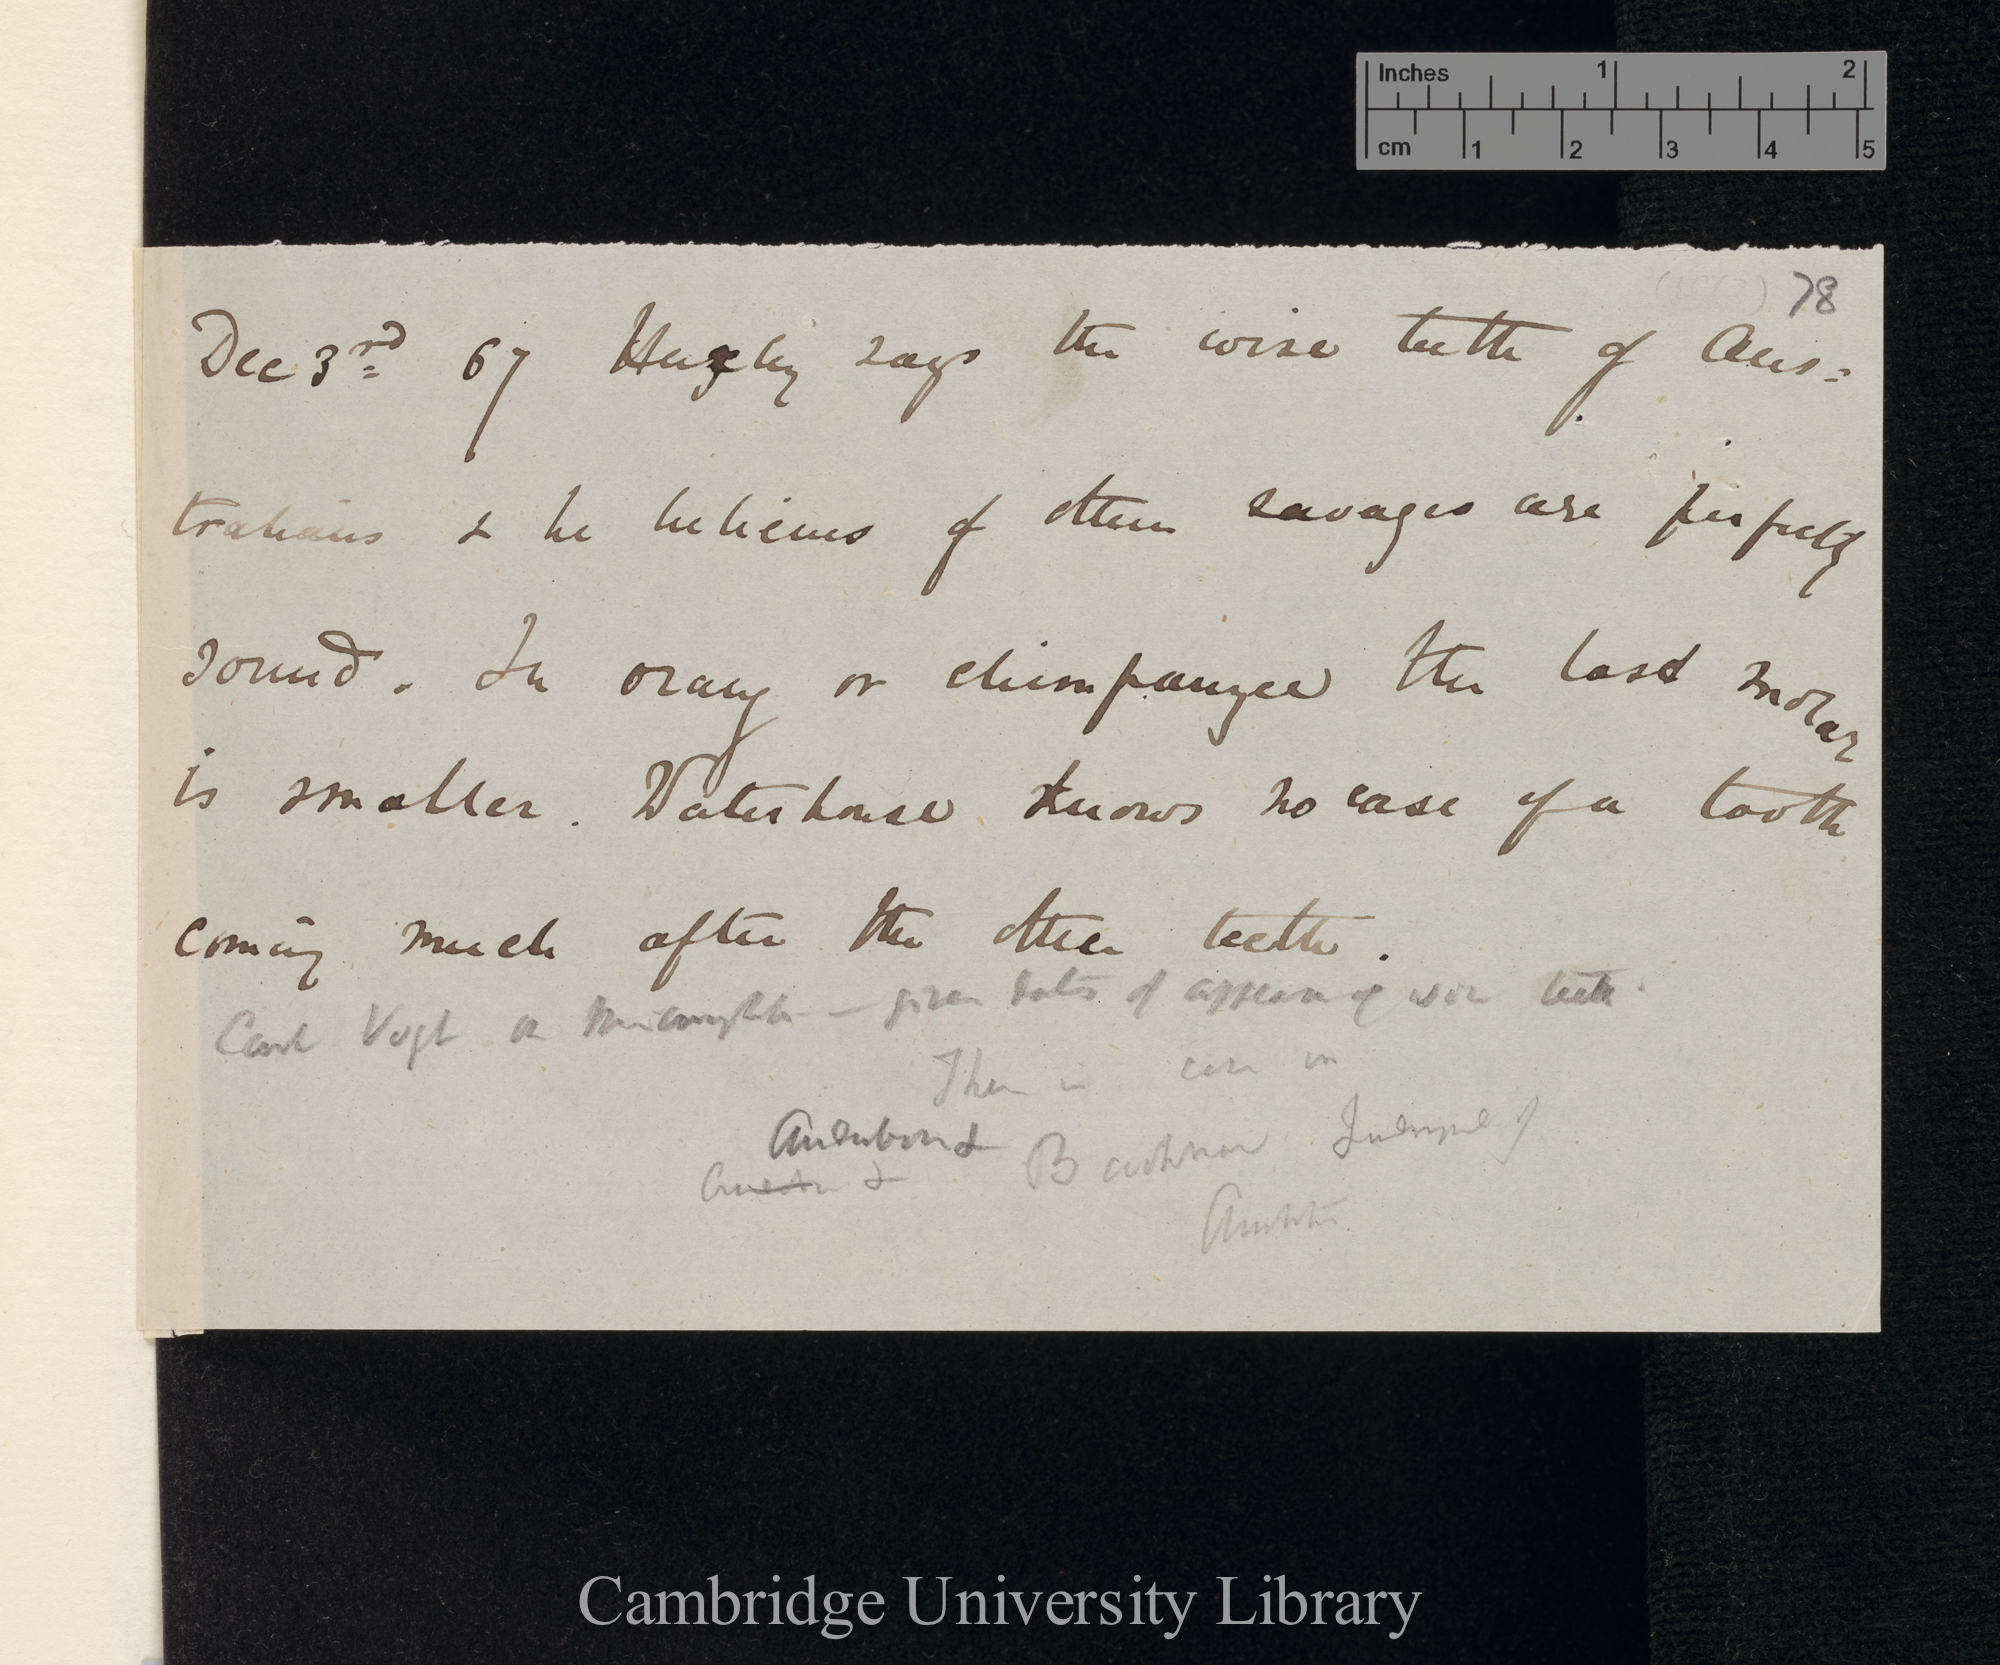 Inches 1 2
cm 1 2 3 4 5
(1867) 78
Dec 3rd 67 Huxley says the wise teeth of Aus=
tralians & he believes of other savages are perfectly
sound. In orang or chimpanzee the last molar
is smaller. Waterhouse knows no case of a tooth
coming much after the other teeth.
Carl Vogt on Microcephali — given dates of appearance of wise teeth.
There is case in
Audubon &
& Bachman Quadrupeds of
Cambridge University Library